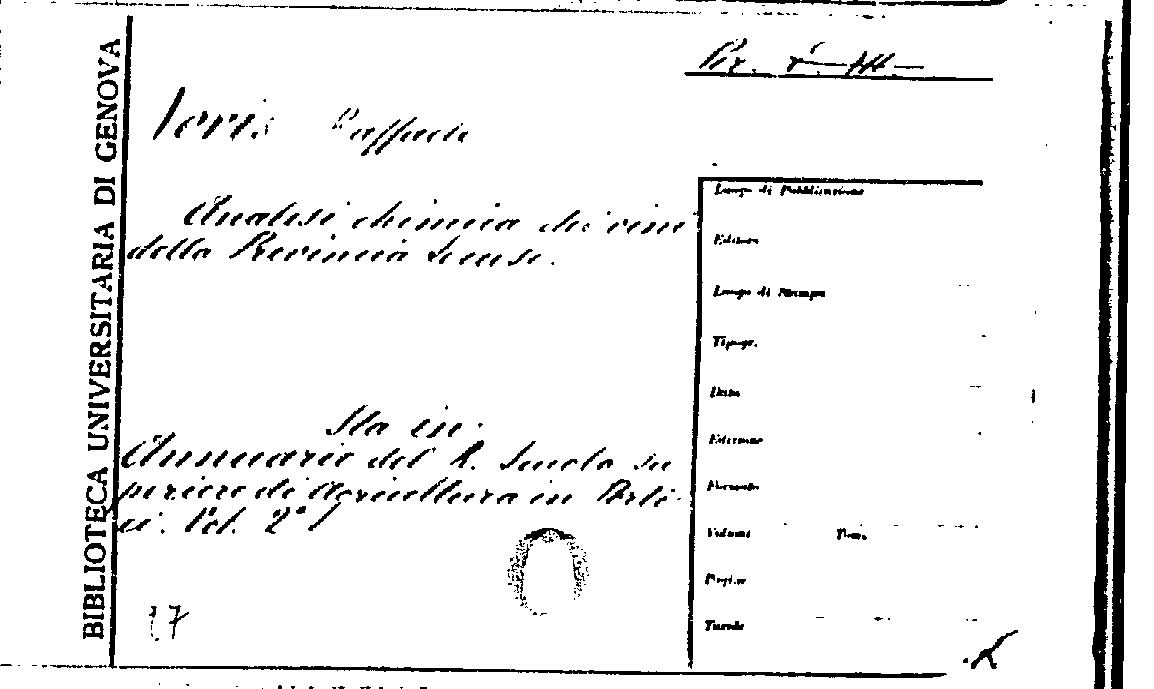 BIBLIOTECA UNIVERSITARIA DI GENOVA
Raffaele
Analisi chimica dei vini
della Provincia
Sta in:
Annuario del R. Scuola su
periore di Agricoltura in Porti-
ci. Vol. 2°
Luogo di Pubblicazione
Editore
Luogo di Stampa
Tipogr.
Data
Edizione
Formato
Volumi
Pagine
Tavole